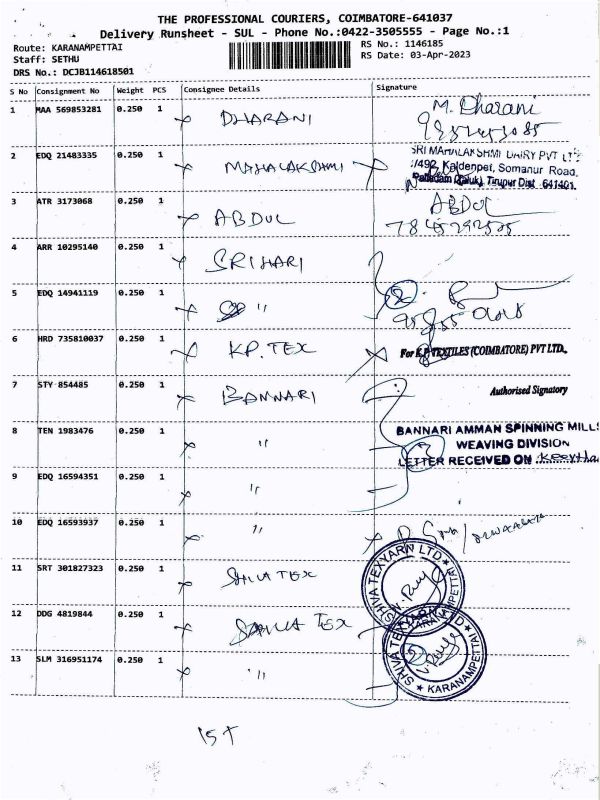 THE PROFESSIONAL COURIERS, COIMBATORE-641037
Delivery Runsheet - SUL - Phone No.:0422-3505555 - Page No.:1
Route: KARANAMPETTAI
RS No.: 1146185
Staff: SETHU
RS Date: 03-Apr-2023
DRS No.: DCJB114618501
S No Consignment No Weight PCS Consignee Details Signature
1 MAA 569853281 0.250 1 DHARANI M. Dharani
2 EDQ 21483335 0.250 1 MAHALAKSHMI SRI MAHALAKSHMI DAIRY PVT LTD
/492, Kaldenpet, Somanur Road,
Palladam (Taluk), Tirupur Dist 641401.
3 ATR 3173068 0.250 1 ABDUL ABDUL
4 ARR 10295140 0.250 1 SRIHARI
5 EDQ 14941119 0.250 1 "
6 HRD 735810037 0.250 1 KP. TEX For K.P. TEXTILES (COIMBATORE) PVT LTD.,
Authorised Signatory
7 STY 854485 0.250 1 BANNARI
BANNARI AMMAN SPINNING MILLS
8 TEN 1983476 0.250 1 " WEAVING DIVISION
LETTER RECEIVED ON
9 EDQ 16594351 0.250 1 "
10 EDQ 16593937 0.250 1 "
11 SRT 301827323 0.250 1 SHIVA TEX SHIVA TEXYARN LTD. KARANAMPETTAI
12 DDG 4819844 0.250 1 SHIVA TEX SHIVA TEXYARN LTD. ★ KARANAMPETTAI ★
13 SLM 316951174 0.250 1 "